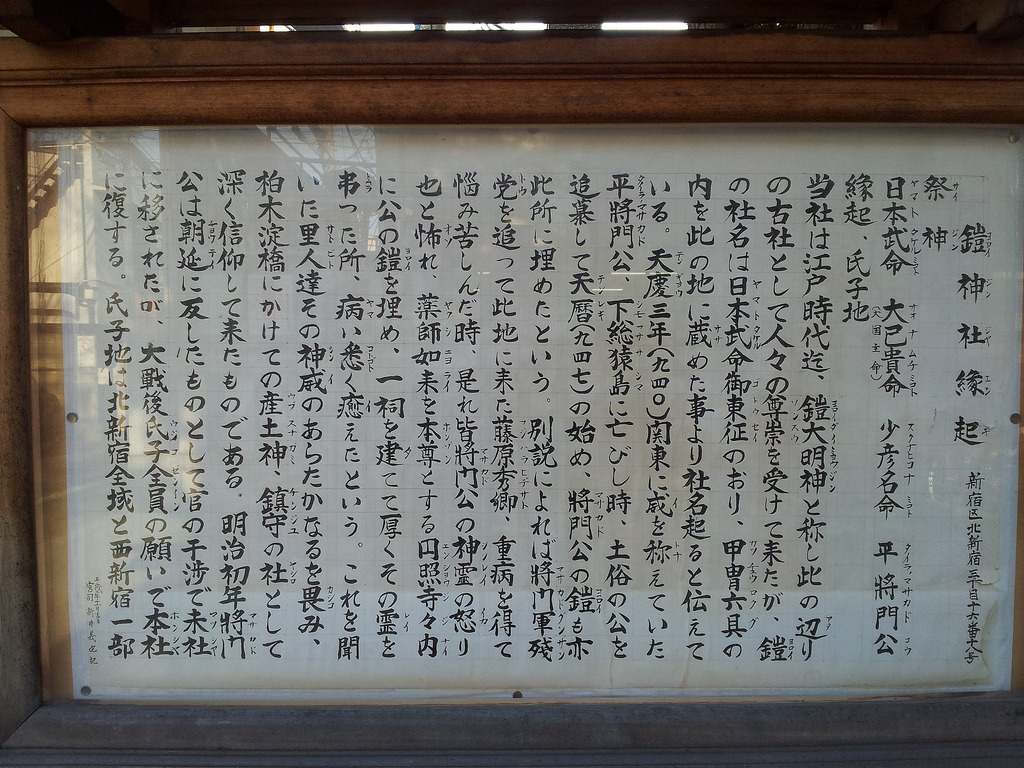 鎧神社縁起 新宿区北新宿三丁目十六番十八号
祭神
日本武命 大己貴命(大国主命) 少彦名命 平將門公
縁起、氏子地
当社は江戸時代迄、鎧大明神と称し此の辺り
の古社として人々の尊崇を受けて来たが、鎧
の社名は日本武命御東征のおり、甲冑六具の
内を此の地に蔵めた事より社名起ると伝えて
いる。天慶三年(九四〇)関東に威を称えていた
平將門公、下総猿島に亡びし時、土俗の公を
追慕して天暦(九四七)の始め、將門公の鎧も亦
此所に埋めたという。別説によれば將門軍残
党を追って此地に来た藤原秀卿、重病を得て
悩み苦しんだ時、是れ皆將門公の神霊の怒り
也と怖れ、薬師如来を本尊とする円照寺々内
に公の鎧を埋め、一祠を建てて厚くその霊を
弔った所、病い悉く癒えたという。これを聞
いに里人達その神威のあらたかなるを畏み、
柏木淀橋にかけての産土神、鎮守の社として
深く信仰して来たものである。明治初年將門
公は朝廷に反したものとして官の干渉で末社
に移されたが、大戦後氏子全員の願いで本社
に復する。氏子地は北新宿全域と西新宿一部
宮司